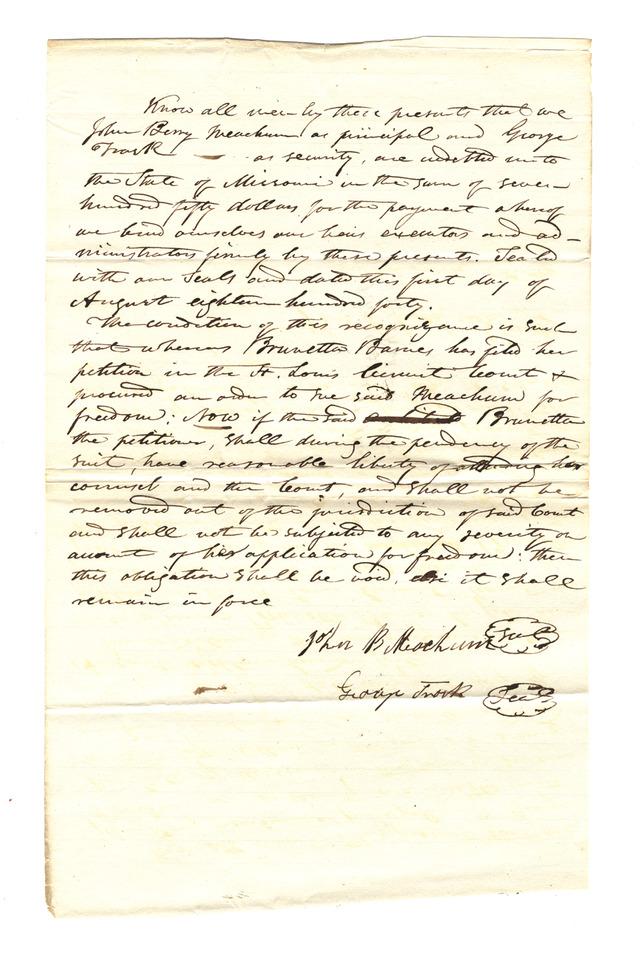 Know all men by these presents that we
John Berry Meachum as principal and George
Trask — as security, are indebted unto
the State of Missouri in the sum of seven
hundred fifty dollars for the payment whereof
we bind ourselves our heirs executors and ad-
ministrators firmly by these presents. Sealed
with our Seals and dated this first day of
August eighteen hundred forty.
The condition of this recognizance is such
that whereas Brunetta Barnes has filed her
petition in the St. Louis Circuit Court &
procured an order to sue said Meachum for
freedom: Now if the said Brunetta
the petitioner, shall during the pendency of the
suit, have reasonable liberty of attending her
counsel and the Court, and shall not be
removed out of the jurisdiction of said Court
and shall not be subjected to any severity on
account of her application for freedom: then
this obligation shall be void, else it shall
remain in force
John B Meachum Seal
George Trask Seal